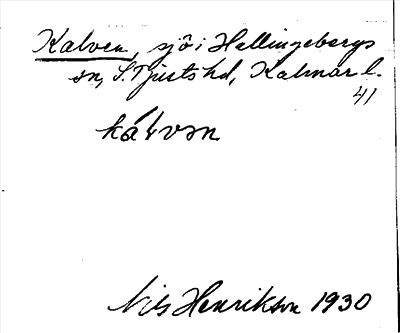 Kalven, sjö i Hallingebergs
sn, S. Tjusts hd, Kalmar l.
41
kálvən
Nils Henrikson 1930